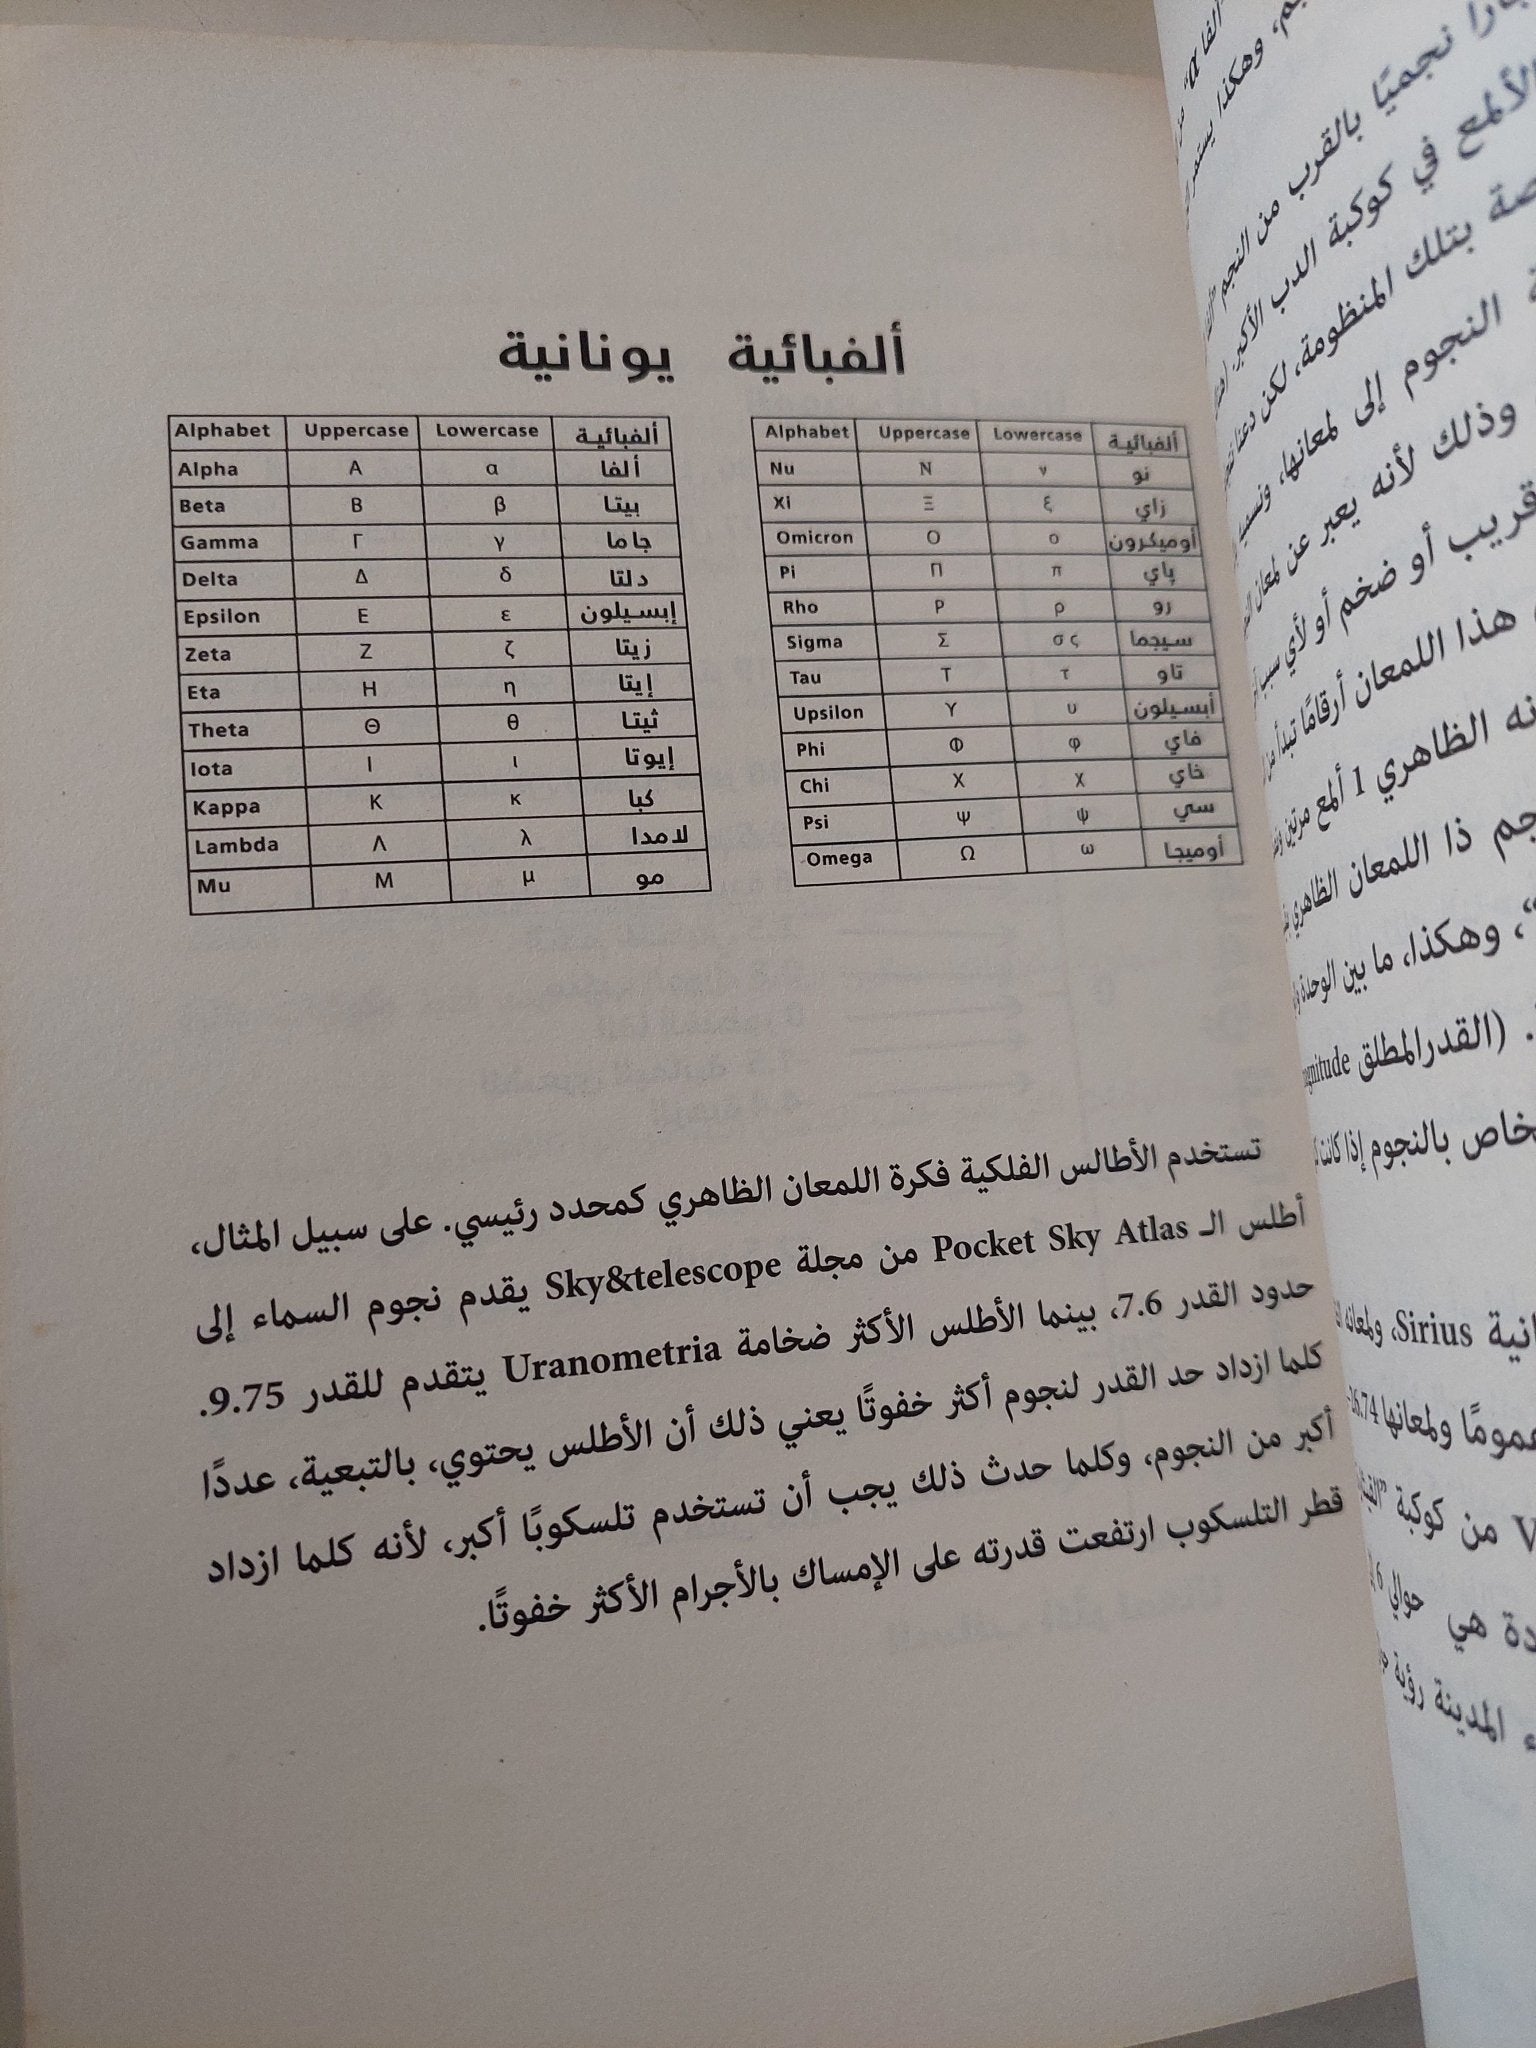 ألفبائية يونانية
Alphabet Uppercase Lowercase ألفبائية
Alpha Α α ألفا
Beta Β β بيتا
Gamma Γ γ جاما
Delta Δ δ دلتا
Epsilon Ε ε إبسيلون
Zeta Ζ ζ زيتا
Eta Η η إيتا
Theta Θ θ ثيتا
Iota Ι ι إيوتا
Kappa Κ κ كبا
Lambda Λ λ لامدا
Mu Μ μ مو
Alphabet Uppercase Lowercase ألفبائية
Nu Ν ν نو
Xi Ξ ξ زاي
Omicron Ο ο أوميكرون
Pi Π π پاي
Rho Ρ ρ رو
Sigma Σ σ ς سيجما
Tau Τ τ تاو
Upsilon Υ υ أبسيلون
Phi Φ φ فاي
Chi Χ χ خاي
Psi Ψ ψ سي
Omega Ω ω أوميجا
تستخدم الأطالس الفلكية فكرة اللمعان الظاهري كمحدد رئيسي. على سبيل المثال،
أطلس الـ Pocket Sky Atlas من مجلة Sky&telescope يقدم نجوم السماء إلى
حدود القدر 7.6، بينما الأطلس الأكثر ضخامة Uranometria يتقدم للقدر 9.75.
كلما ازداد حد القدر لنجوم أكثر خفوتًا يعني ذلك أن الأطلس يحتوي، بالتبعية، عددًا
أكبر من النجوم، وكلما حدث ذلك يجب أن تستخدم تلسكوبًا أكبر، لأنه كلما ازداد
قطر التلسكوب ارتفعت قدرته على الإمساك بالأجرام الأكثر خفوتًا.
وهكذا يستمر
نجميًا بالقرب من النجم
الألمع في كوكبة الدب الأكبر
بتلك المنظومة، لكن دعنا
النجوم إلى لمعانها،
وذلك لأنه يعبر عن لمعان
قريب أو ضخم أو لأي سبب
هذا اللمعان أرقامًا تبدأ من
الظاهري 1 ألمع مرتين
ذا اللمعان الظاهري
وهكذا، ما بين الوحدة
(القدرالمطلق
بالنجوم إذا كانت
Sirius، ولمعانه
عمومًا ولمعانها
من كوكبة
هي حوالي 6
المدينة رؤية